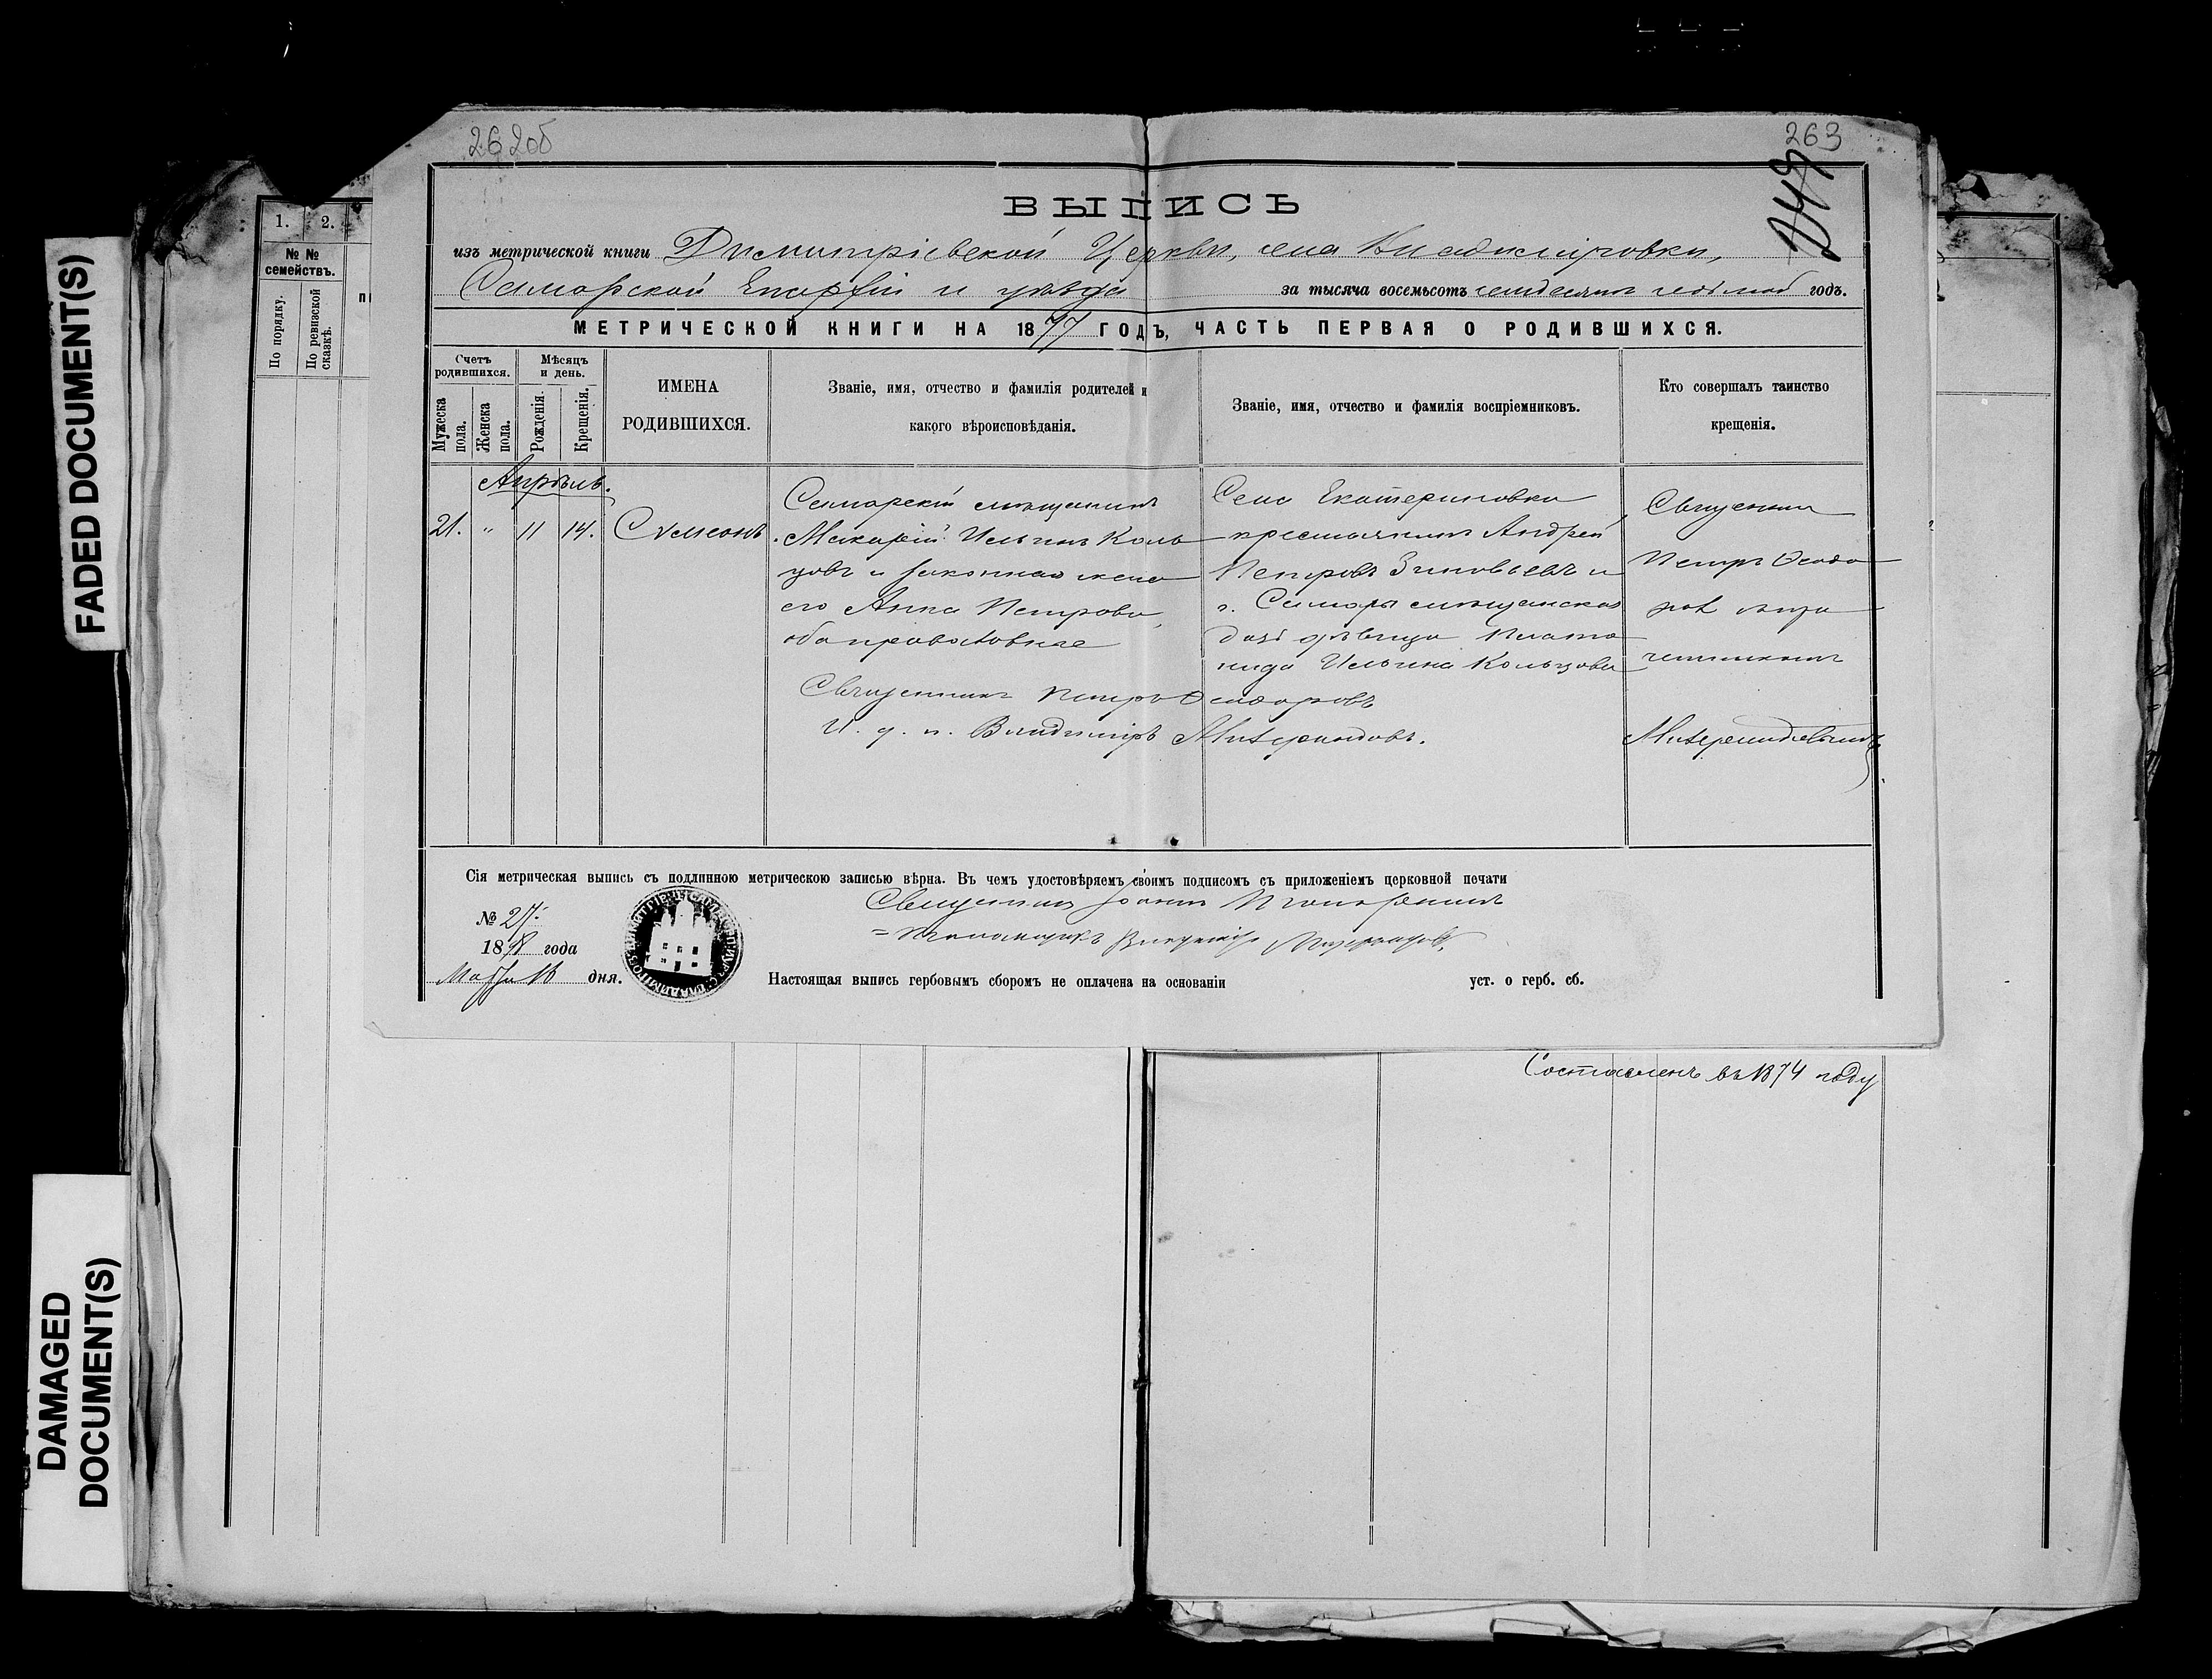 262об
263
ВЫПИСЬ
изъ метрической книги Димитріевской Церкви, села Владиміровки,
Самарской Епархіи и уѣзда за тысяча восемьсотъ семдесятъ седьмой годъ.
МЕТРИЧЕСКОЙ КНИГИ НА 1877 ГОДЪ, ЧАСТЬ ПЕРВАЯ О РОДИВШИХСЯ.
Счетъ родившихся.
Мужеска пола.
Женска пола.
Мѣсяцъ и день.
Рожденія.
Крещенія.
ИМЕНА
РОДИВШИХСЯ.
Званіе, имя, отчество и фамилія родителей и
какого вѣроисповѣданія.
Званіе, имя, отчество и фамилія воспріемниковъ.
Кто совершалъ таинство
крещенія.
Апрѣль.
21. " 11 14. Сѵмеонъ.
Самарскій мѣщанинъ
Макарій Ильинъ Коль
цовъ и законная жена
его Анна Петрова,
оба православные
Села Екатериновки
крестьянинъ Андрей
Петровъ Зиновьевъ и
г. Самары мѣщанская
дѣвица Плато
нида Ильина Кольцова
Священникъ
Петръ Ѳеодо
ровъ
Священникъ Петръ Ѳеодоровъ
И. д. п. Владиміръ
Сія метрическая выпись съ подлинною метрическою записью вѣрна. Въ чемъ удостовѣряемъ своимъ подписомъ съ приложеніемъ церковной печати
Священникъ Іоаннъ
№ 27.
1898 года
Марта 16 дня.
Псаломщикъ Владиміръ
Настоящая выпись гербовымъ сборомъ не оплачена на основаніи уст. о герб. сб.
1. 2.
№ №
семействъ.
По порядку.
По ревизской сказкѣ.
Составленъ въ 1874 году
FADED DOCUMENT(S)
DAMAGED
DOCUMENT(S)